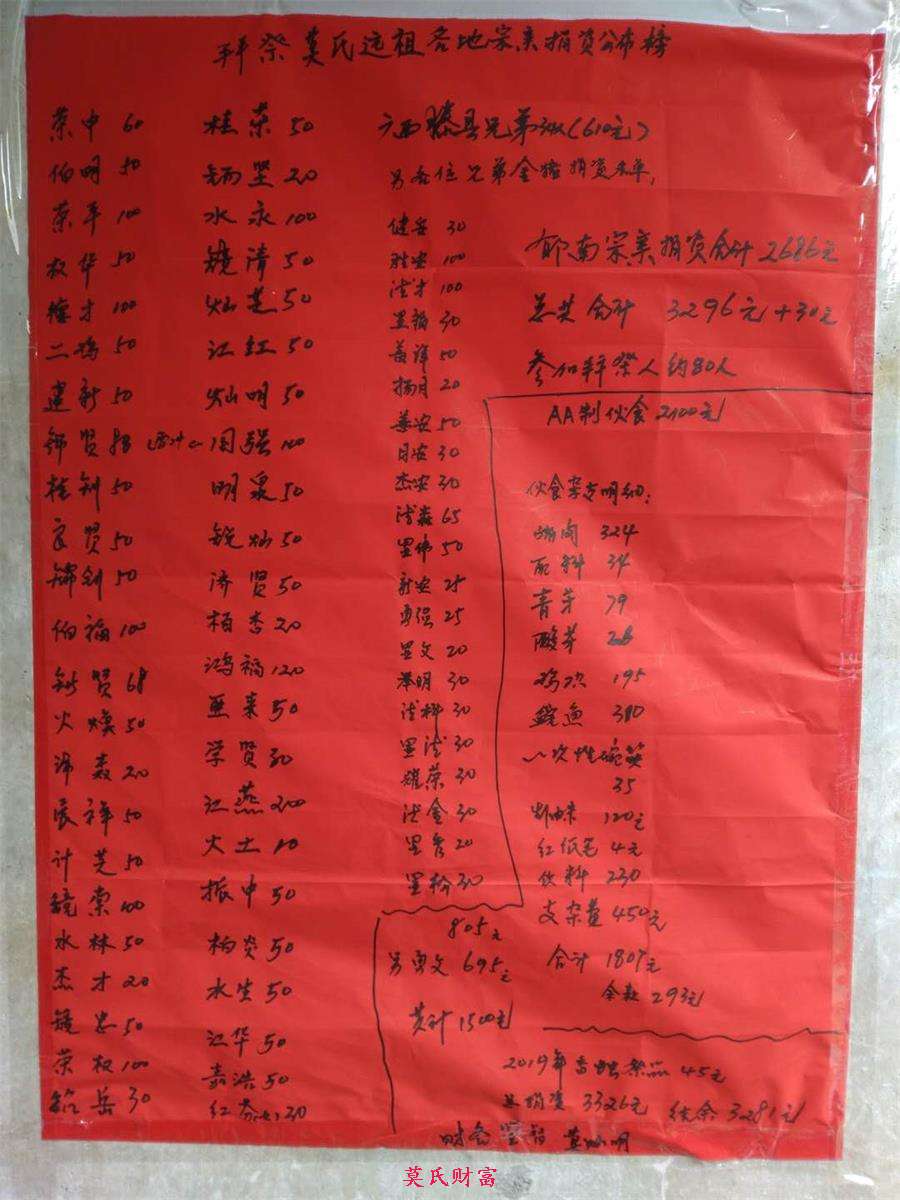 拜祭莫氏远祖各地宗亲捐资公布榜
荣中 60
伯明 50
荣平 100
权华 50
德才 100
二鸿 50
建新 50
贤招
桂钊 50
良贤 50
锦钊 50
伯福 100
贤 68
火焕 50
沛森 20
辰祥 50
计芝 50
镜棠 100
水林 50
杰才 20
镜忠 50
荣权 100
铭岳 30
桂东 50
炳坚 20
水永 100
镜清 50
灿芝 50
江红 50
灿明 50
国强 100
明泉 50
锐灿 50
济贤 50
柏李 20
鸿福 120
亚来 50
学贤 30
江燕 200
火土 10
振中 50
柏炎 50
水生 50
江华 50
嘉浩 50
红 20
广西滕县兄弟们(610元)
另各位兄弟金猪捐资名单,
健岳 30
胜安 100
法才 100
星福 30
善谋 50
扬月 20
华安 50
日安 30
杰安 30
法森 65
星伟 50
新安 25
勇强 25
星文 20
举明 30
法科 30
星法 30
耀荣 30
法金 30
星 20
星 30
805元
另勇文 695元
共计 1500元
郁南宗亲捐资合计 2686元
总共合计 3296元+30元
参加拜祭人约80人
AA制伙食 2100元
伙食杂支明细:
猪肉 324
配料 34
青芽 79
酸芽 26
鸡项 195
鲩鱼 310
一次性碗筷
35
炉油米 120元
红纸毛 4元
饮料 230
支杂费 450元
合计 1807元
余款 293元
2019年香烛祭品 45元
总捐资 3326元 结余 3281元
财会 星 莫灿明
莫氏财富